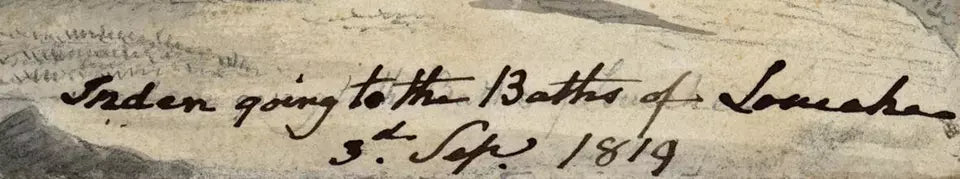 Inden going to the Baths of Loueche
3.d Sep. 1819